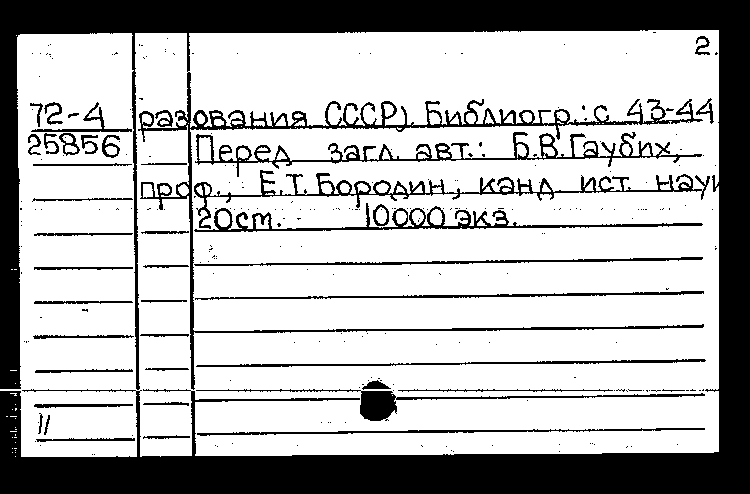 2.
72-4 разования СССР). Библиогр.: с 43-44
25856 Перед загл. авт.: Б.В.Гаубих,
проф., Е.Т. Бородин, канд ист. наук
20cm. 10000 экз.
11